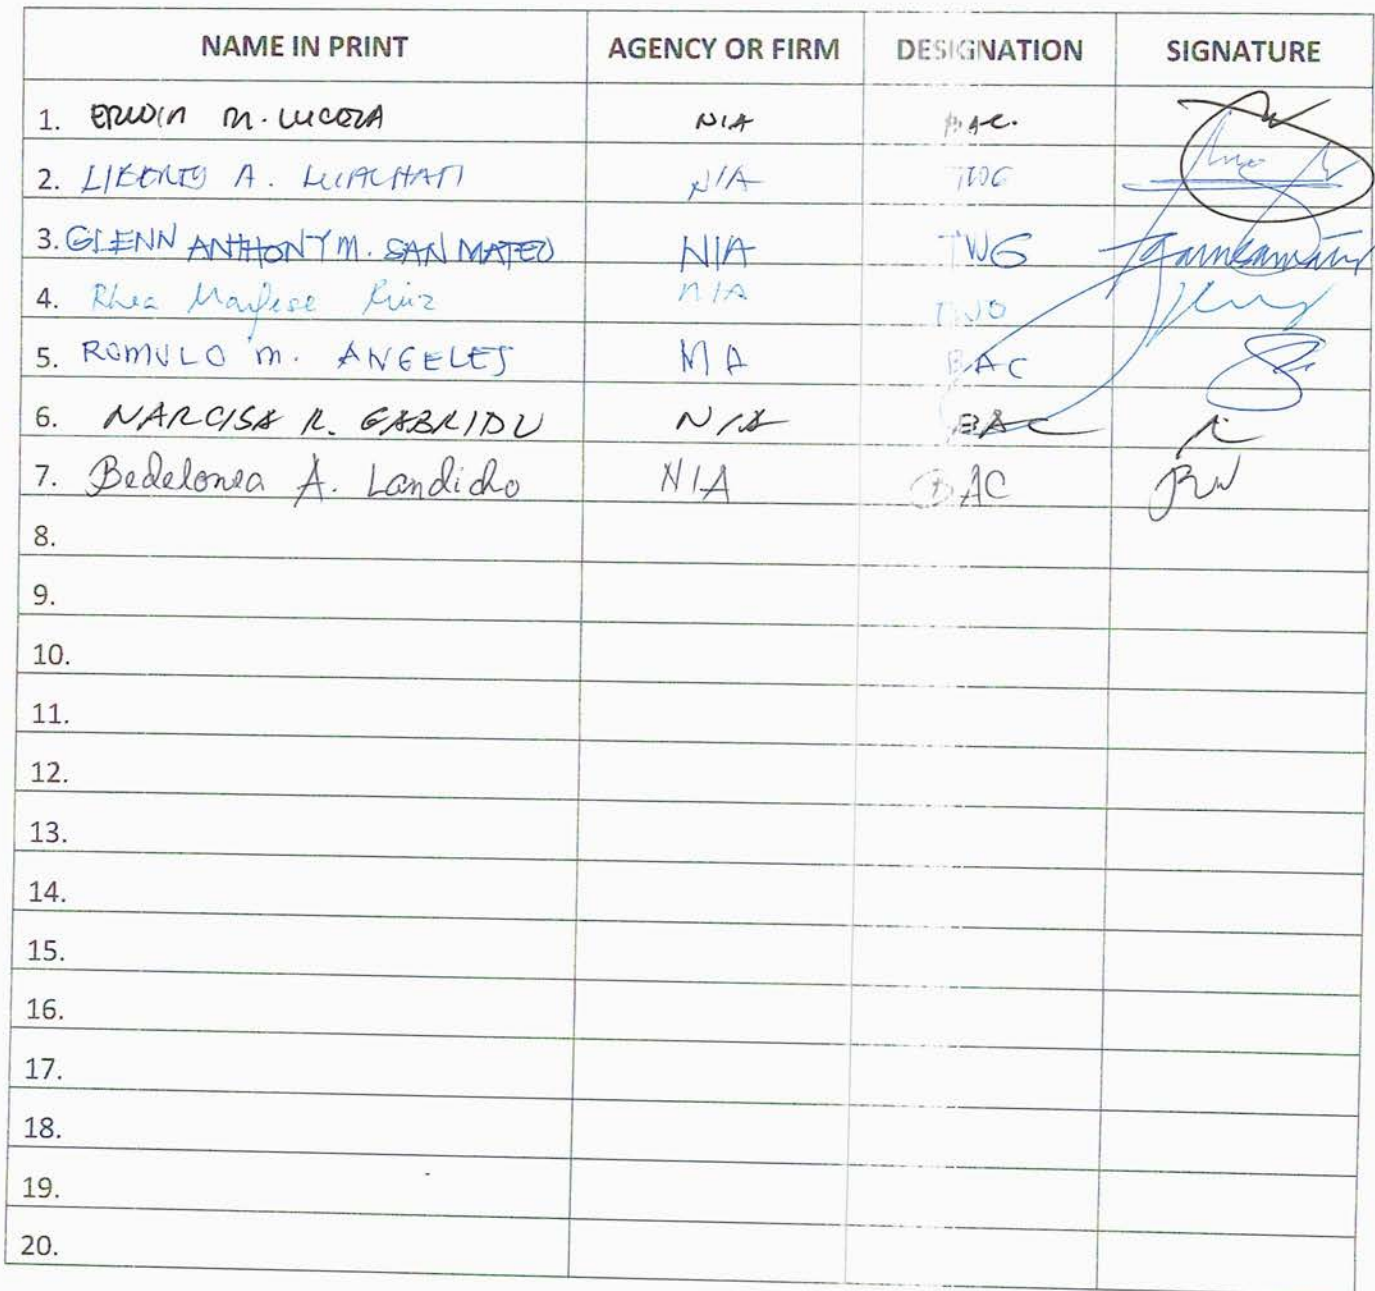 NAME IN PRINT AGENCY OR FIRM DESIGNATION SIGNATURE
1. ERWIN M. LUCERA NIA BAC.
2. LIBERTY A. NIA TWG
3. GLENN ANTHONY M. SAN MATEO NIA TWG
4. Rhea Ruiz NIA TWG
5. ROMULO M. ANGELES NIA BAC
6. NARCISA R. NIA BAC
7. A. Landicho NIA BAC
8.
9.
10.
11.
12.
13.
14.
15.
16.
17.
18.
19.
20.